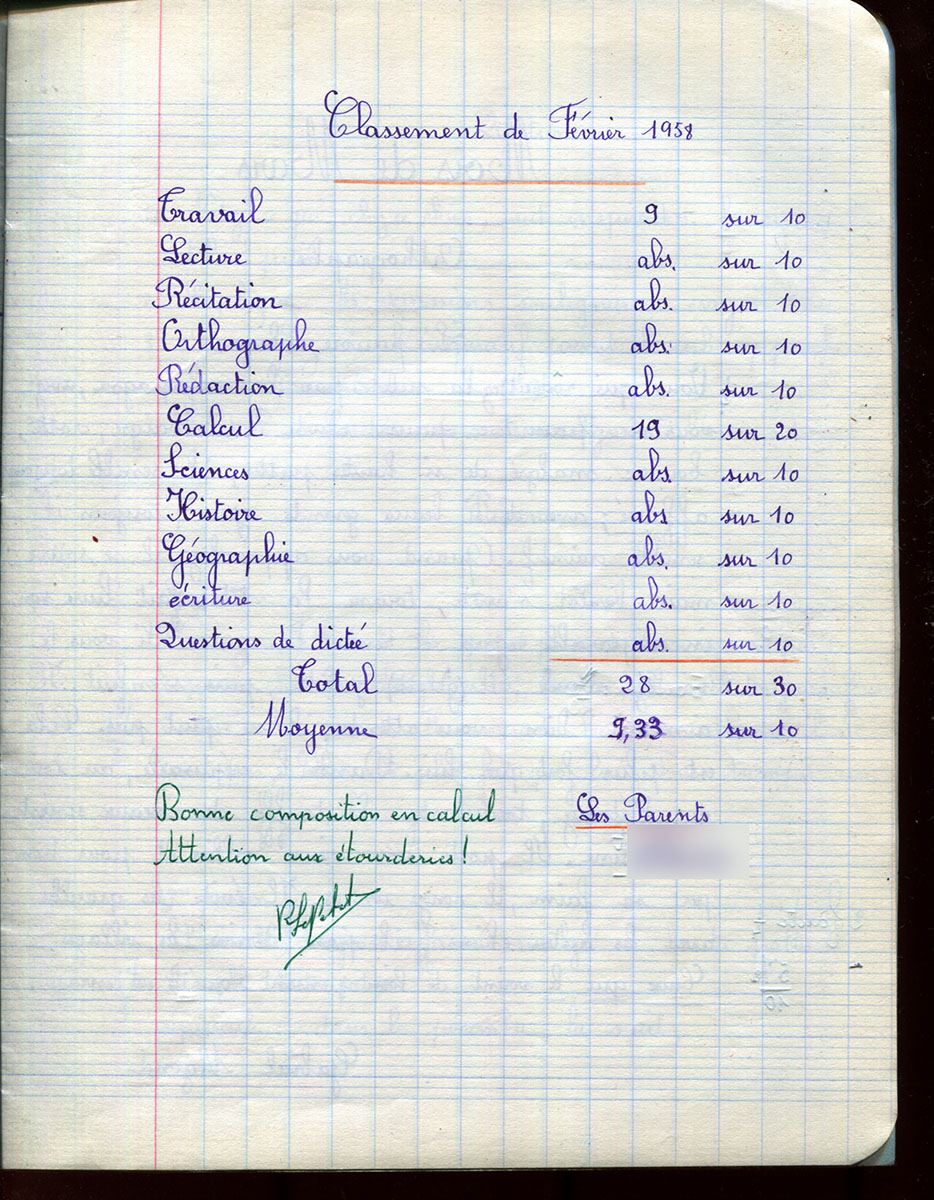 Classement de Février 1958
Travail 9 sur 10
Lecture abs. sur 10
Récitation abs. sur 10
Orthographe abs. sur 10
Rédaction abs. sur 10
Calcul 19 sur 20
Sciences abs. sur 10
Histoire abs sur 10
Géographie abs. sur 10
écriture abs. sur 10
Questions de dictée abs. sur 10
Total 28 sur 30
Moyenne 9,33 sur 10
Bonne composition en calcul Les Parents
Attention aux étourderies !